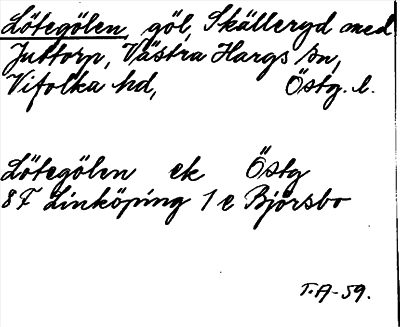 Lötegölen, göl, Skälleryd med
Juttorp, Västra Hargs sn,
Vifolka hd, Östg. l.
Lötegölen ek Östg
8 F Linköping 1 e Björsbo
T.A-59.